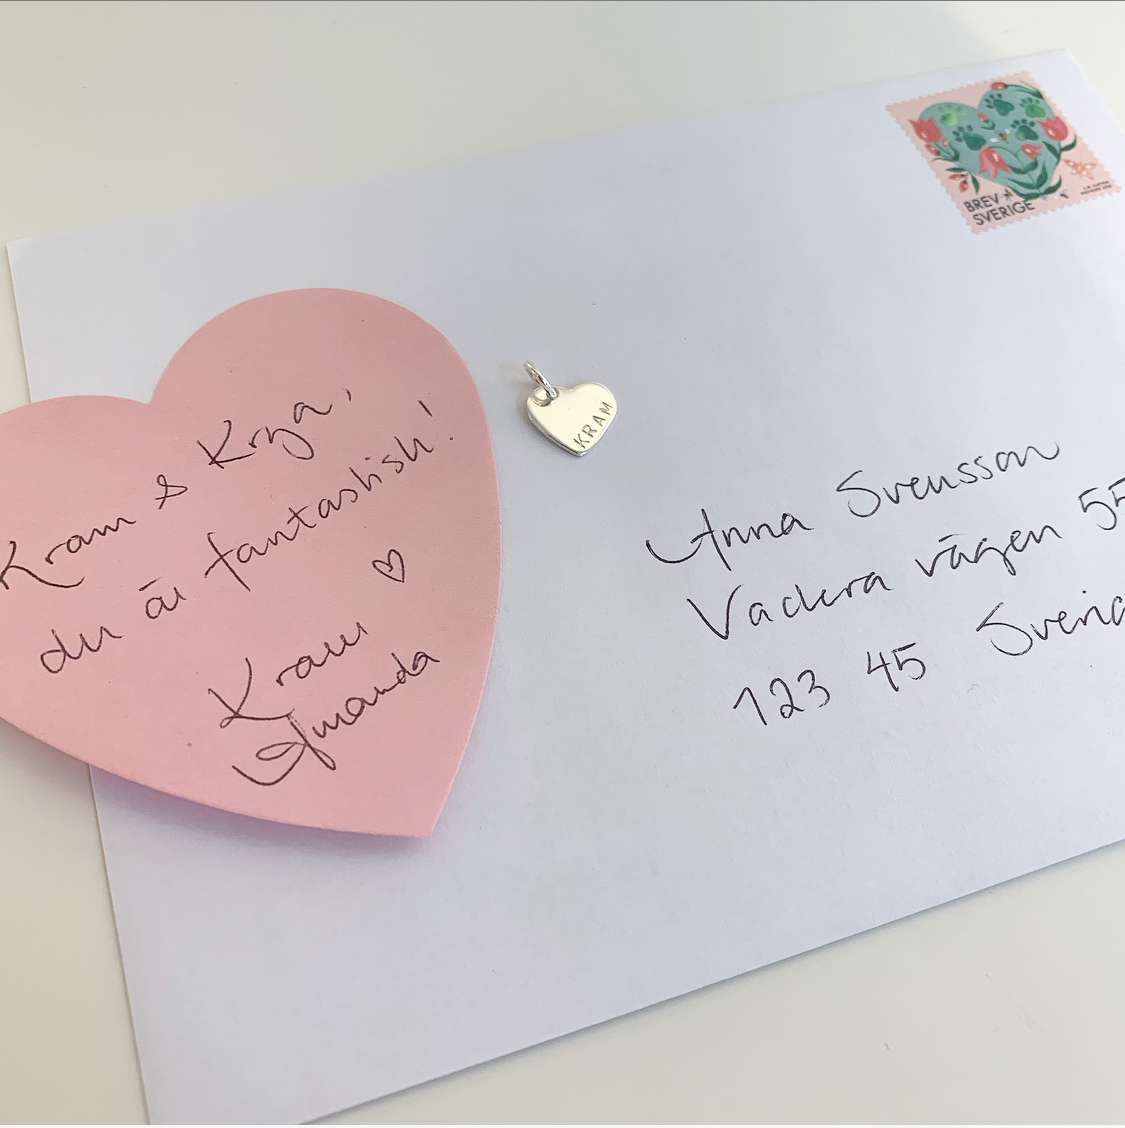 Kram & Krya,
du är fantastisk!
Kram
Amanda
KRAM
BREV
SVERIGE
Anna Svensson
Vackra vägen 55
123 45